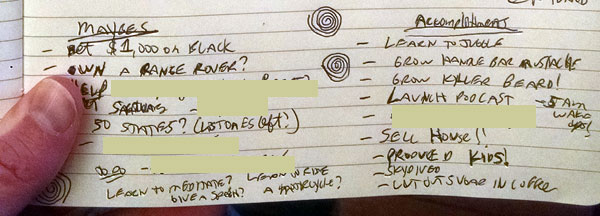 MAYBES
- BET $1,000 ON BLACK
- OWN A RANGE ROVER?
HELP
50 STATES? (LIST ONES LEFT?)
LEARN TO MEDITATE? LEARN TO RIDE
GIVE A SPEECH? A MOTORCYCLE?
ACCOMPLISHMENTS
- LEARN TO JUGGLE
- GROW HANDLE BAR MUSTACHE
- GROW KILLER BEARD!
- LAUNCH PODCAST - 5 AM
WAKE
UPS!
- SELL HOUSE!!
- PRODUCED KIDS!
- SKYDIVED
- CUT OUT SUGAR IN COFFEE